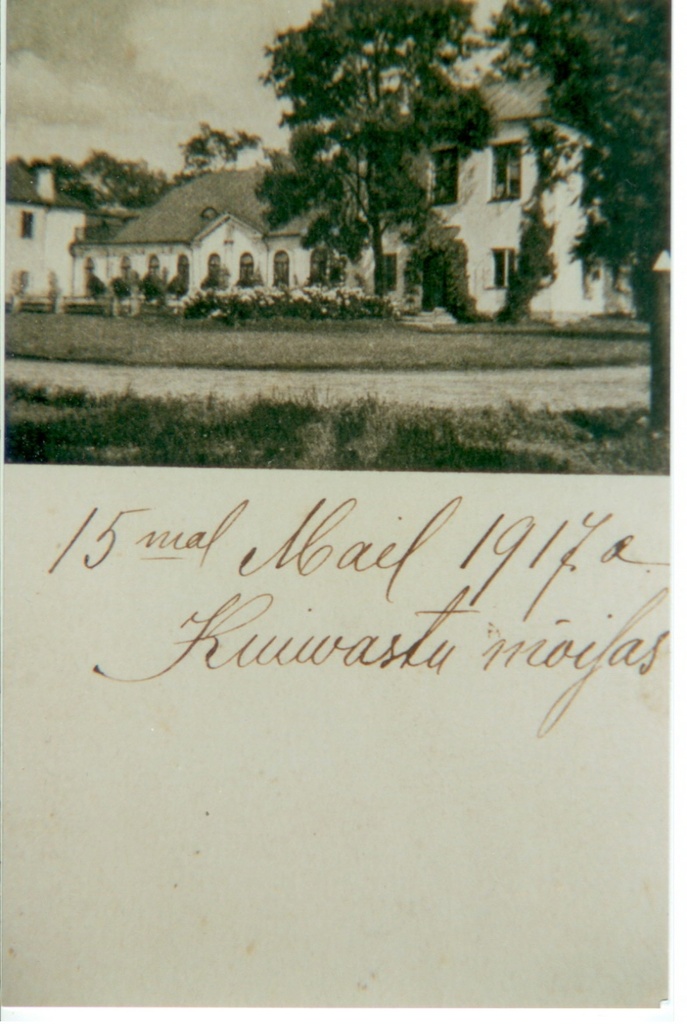 15 mal Mail 1917. a
Kuiwastu mõisas